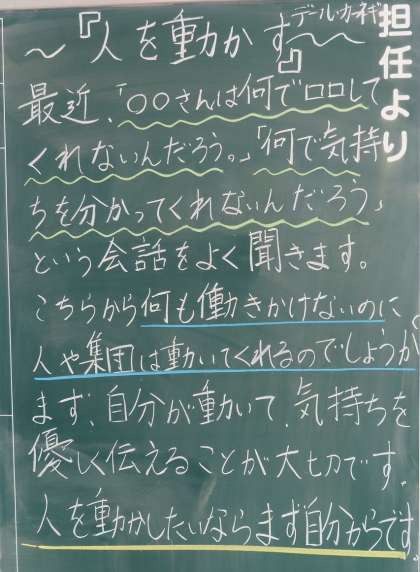 担任より
デール・カーネギ
～『人を動かす』～
最近、「〇〇さんは何で口口して
くれないんだろう。」「何で気持
ちを分かってくれないんだろう」
という会話をよく聞きます。
こちらから何も働きかけないのに
人や集団は動いてくれるのでしょうか
まず、自分が動いて、気持ちを
優しく伝えることが大切です。
人を動かしたいならまず自分からです。